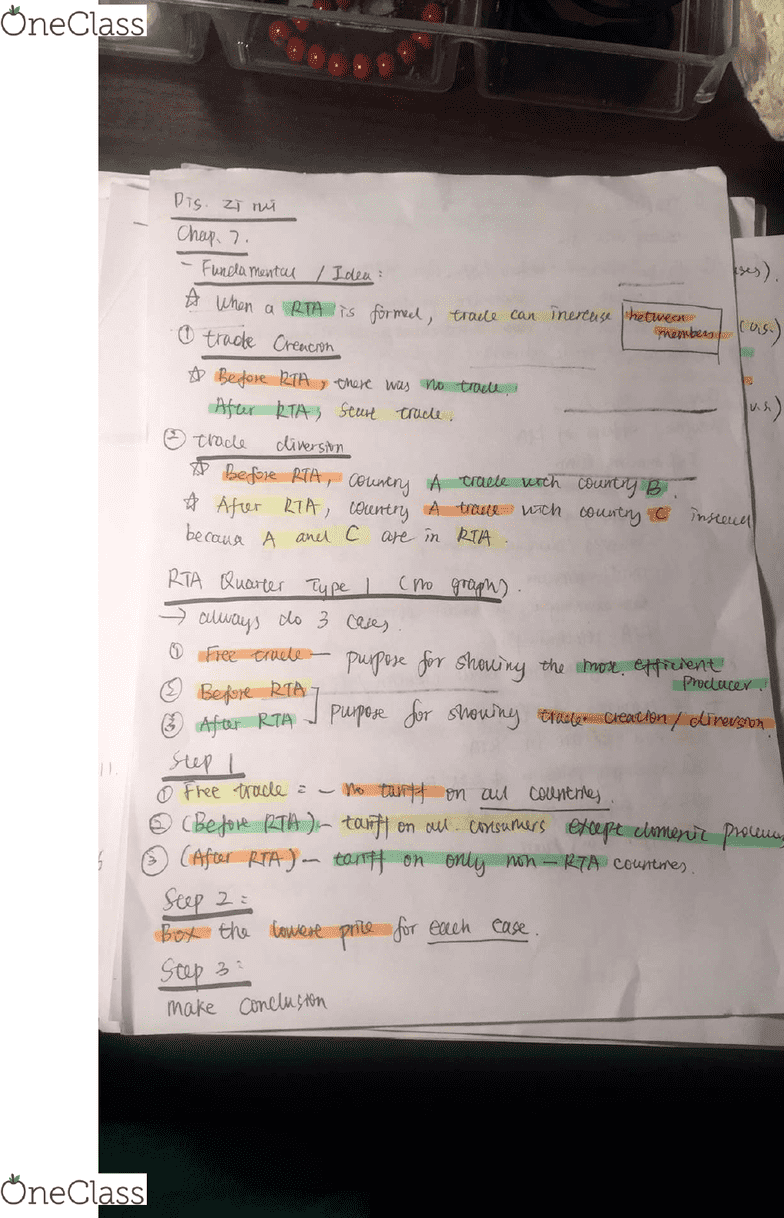 OneClass
Dis. zi mi
Chap. 7.
- Fundamental / Idea :
☆ When a RTA is formed, trade can increase between members
① trade Creation
☆ Before RTA, there was no trade.
After RTA, start trade.
② trade diversion
☆ Before RTA, country A trade with country B.
☆ After RTA, country A trade with country C instead
becaus A and C are in RTA.
RTA Quarter Type 1 (no graph).
→ always do 3 cases.
① Free trade — purpose for showing the most efficient
producer.
② Before RTA
③ After RTA ] purpose for showing trade creation / diversion.
Step 1
① Free trade = - no tariff on all countries.
② (Before RTA) - tariff on all consumers except domestic
③ (After RTA) - tariff on only non-RTA countries.
Step 2 :
Box the lowest price for each case.
Step 3 :
make conclusion
ses).
(U.S.)
U.S.)
11.
OneClass